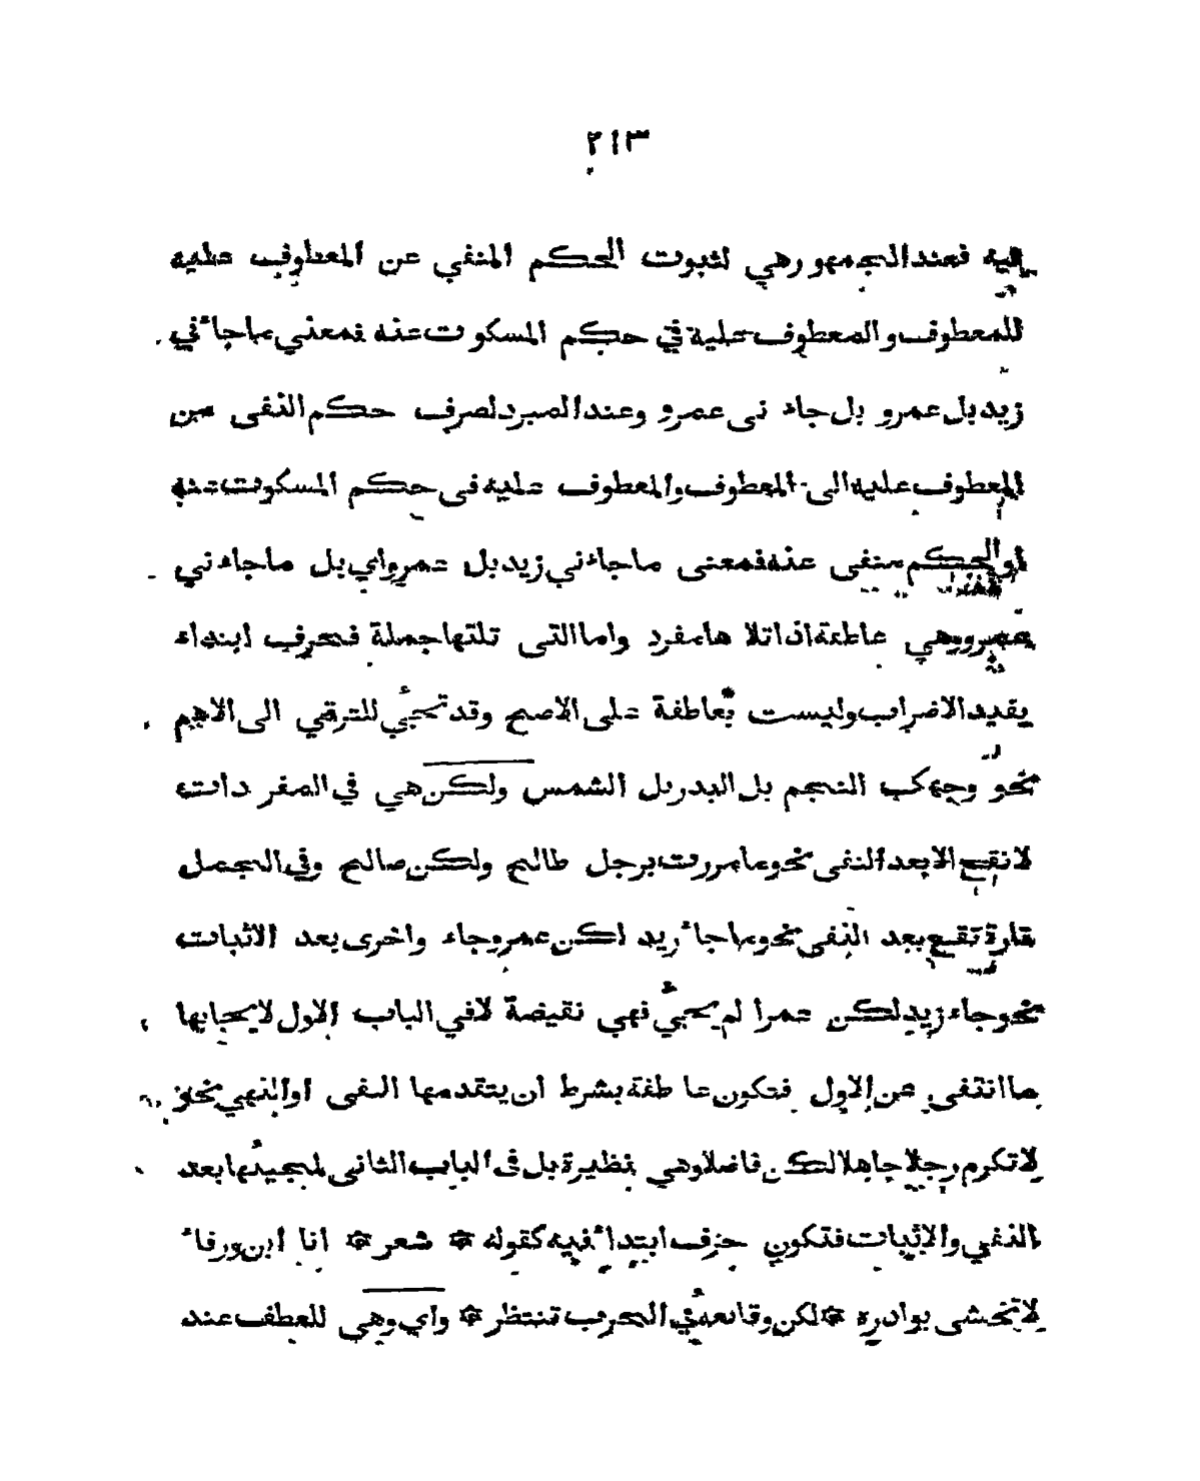 ٢١٣
اليه فعند الجمهور هي لثبوت الحكم المنفي عن المعطوف عليه
للمعطوف والمعطوف عليه في حكم المسكوت عنه فمعنى ما جاءني
زيد بل عمرو بل جاء نى عمرو وعند المبرد لصرف حكم النفى من
المعطوف عليه الى المعطوف والمعطوف عليه فى حكم المسكوت عنه
او الحكم منفى عنه فمعنى ما جاءني زيد بل عمرو اي بل ما جاءني
عمرو وهي عاطفة اذا تلاها مفرد واما التى تلتها جملة فحرف ابتداء
يفيد الاضراب وليست بعاطفة على الاصح وقد تجئ للترقي الى الاهم
نحو وجهك النجم بل البدر بل الشمس ولكن هي في المفردات
لا تقع الا بعد النفى نحو ما مررت برجل طالح ولكن صالح وفي الجمل
تارة تقع بعد النفى نحو ما جاء زيد لكن عمرو جاء واخرى بعد الاثبات
نحو جاء زيد لكن عمرا لم يجئ فهي نقيضة لا في الباب الاول لايجابها
ما انتفى عن الاول فتكون عا طفة بشرط ان يتقدمها النفى او النهي نحو
لا تكرم رجلا جاهلا لكن فاضلا وهي نظيرة بل فى الباب الثانى لمجيئها بعد
النفي والاثبات فتكون حرف ابتداء فيه كقوله * شعر * انا ابن ورقاء
لا تخشى بوادره * لكن وقائعه في الحرب تنتظر * واي وهي للعطف عند